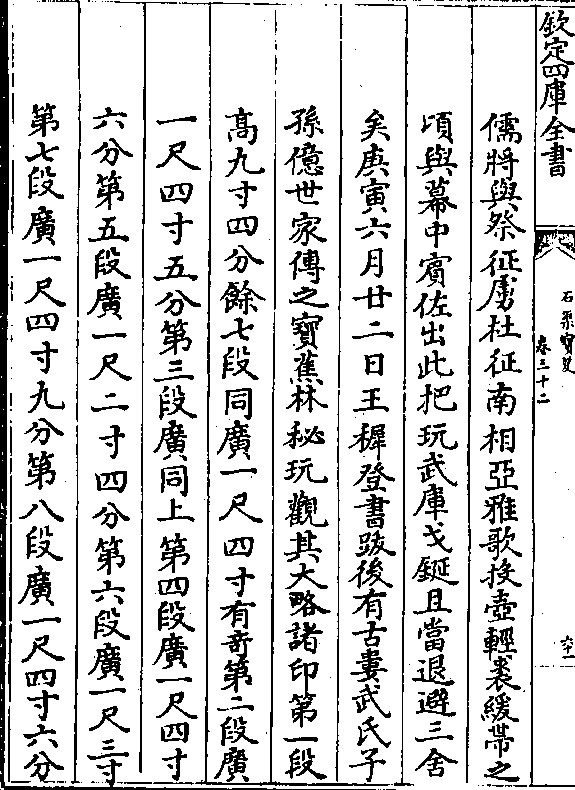 欽定四庫全書
石渠寶笈
卷三十二
六十一
儒將與祭征虜杜征南相亞雅歌投壺輕裘緩帶之
頃與幕中賓佐出此把玩武庫戈鋋且當退避三舍
矣庚寅六月廿二日王穉登書跋後有古婁武氏子
孫億世家傳之寶蕉林秘玩觀其大略諸印第一段
高九寸四分餘七段同廣一尺四寸有奇第二段廣
一尺四寸五分第三段廣同上第四段廣一尺四寸
六分第五段廣一尺二寸四分第六段廣一尺三寸
第七段廣一尺四寸九分第八段廣一尺四寸六分